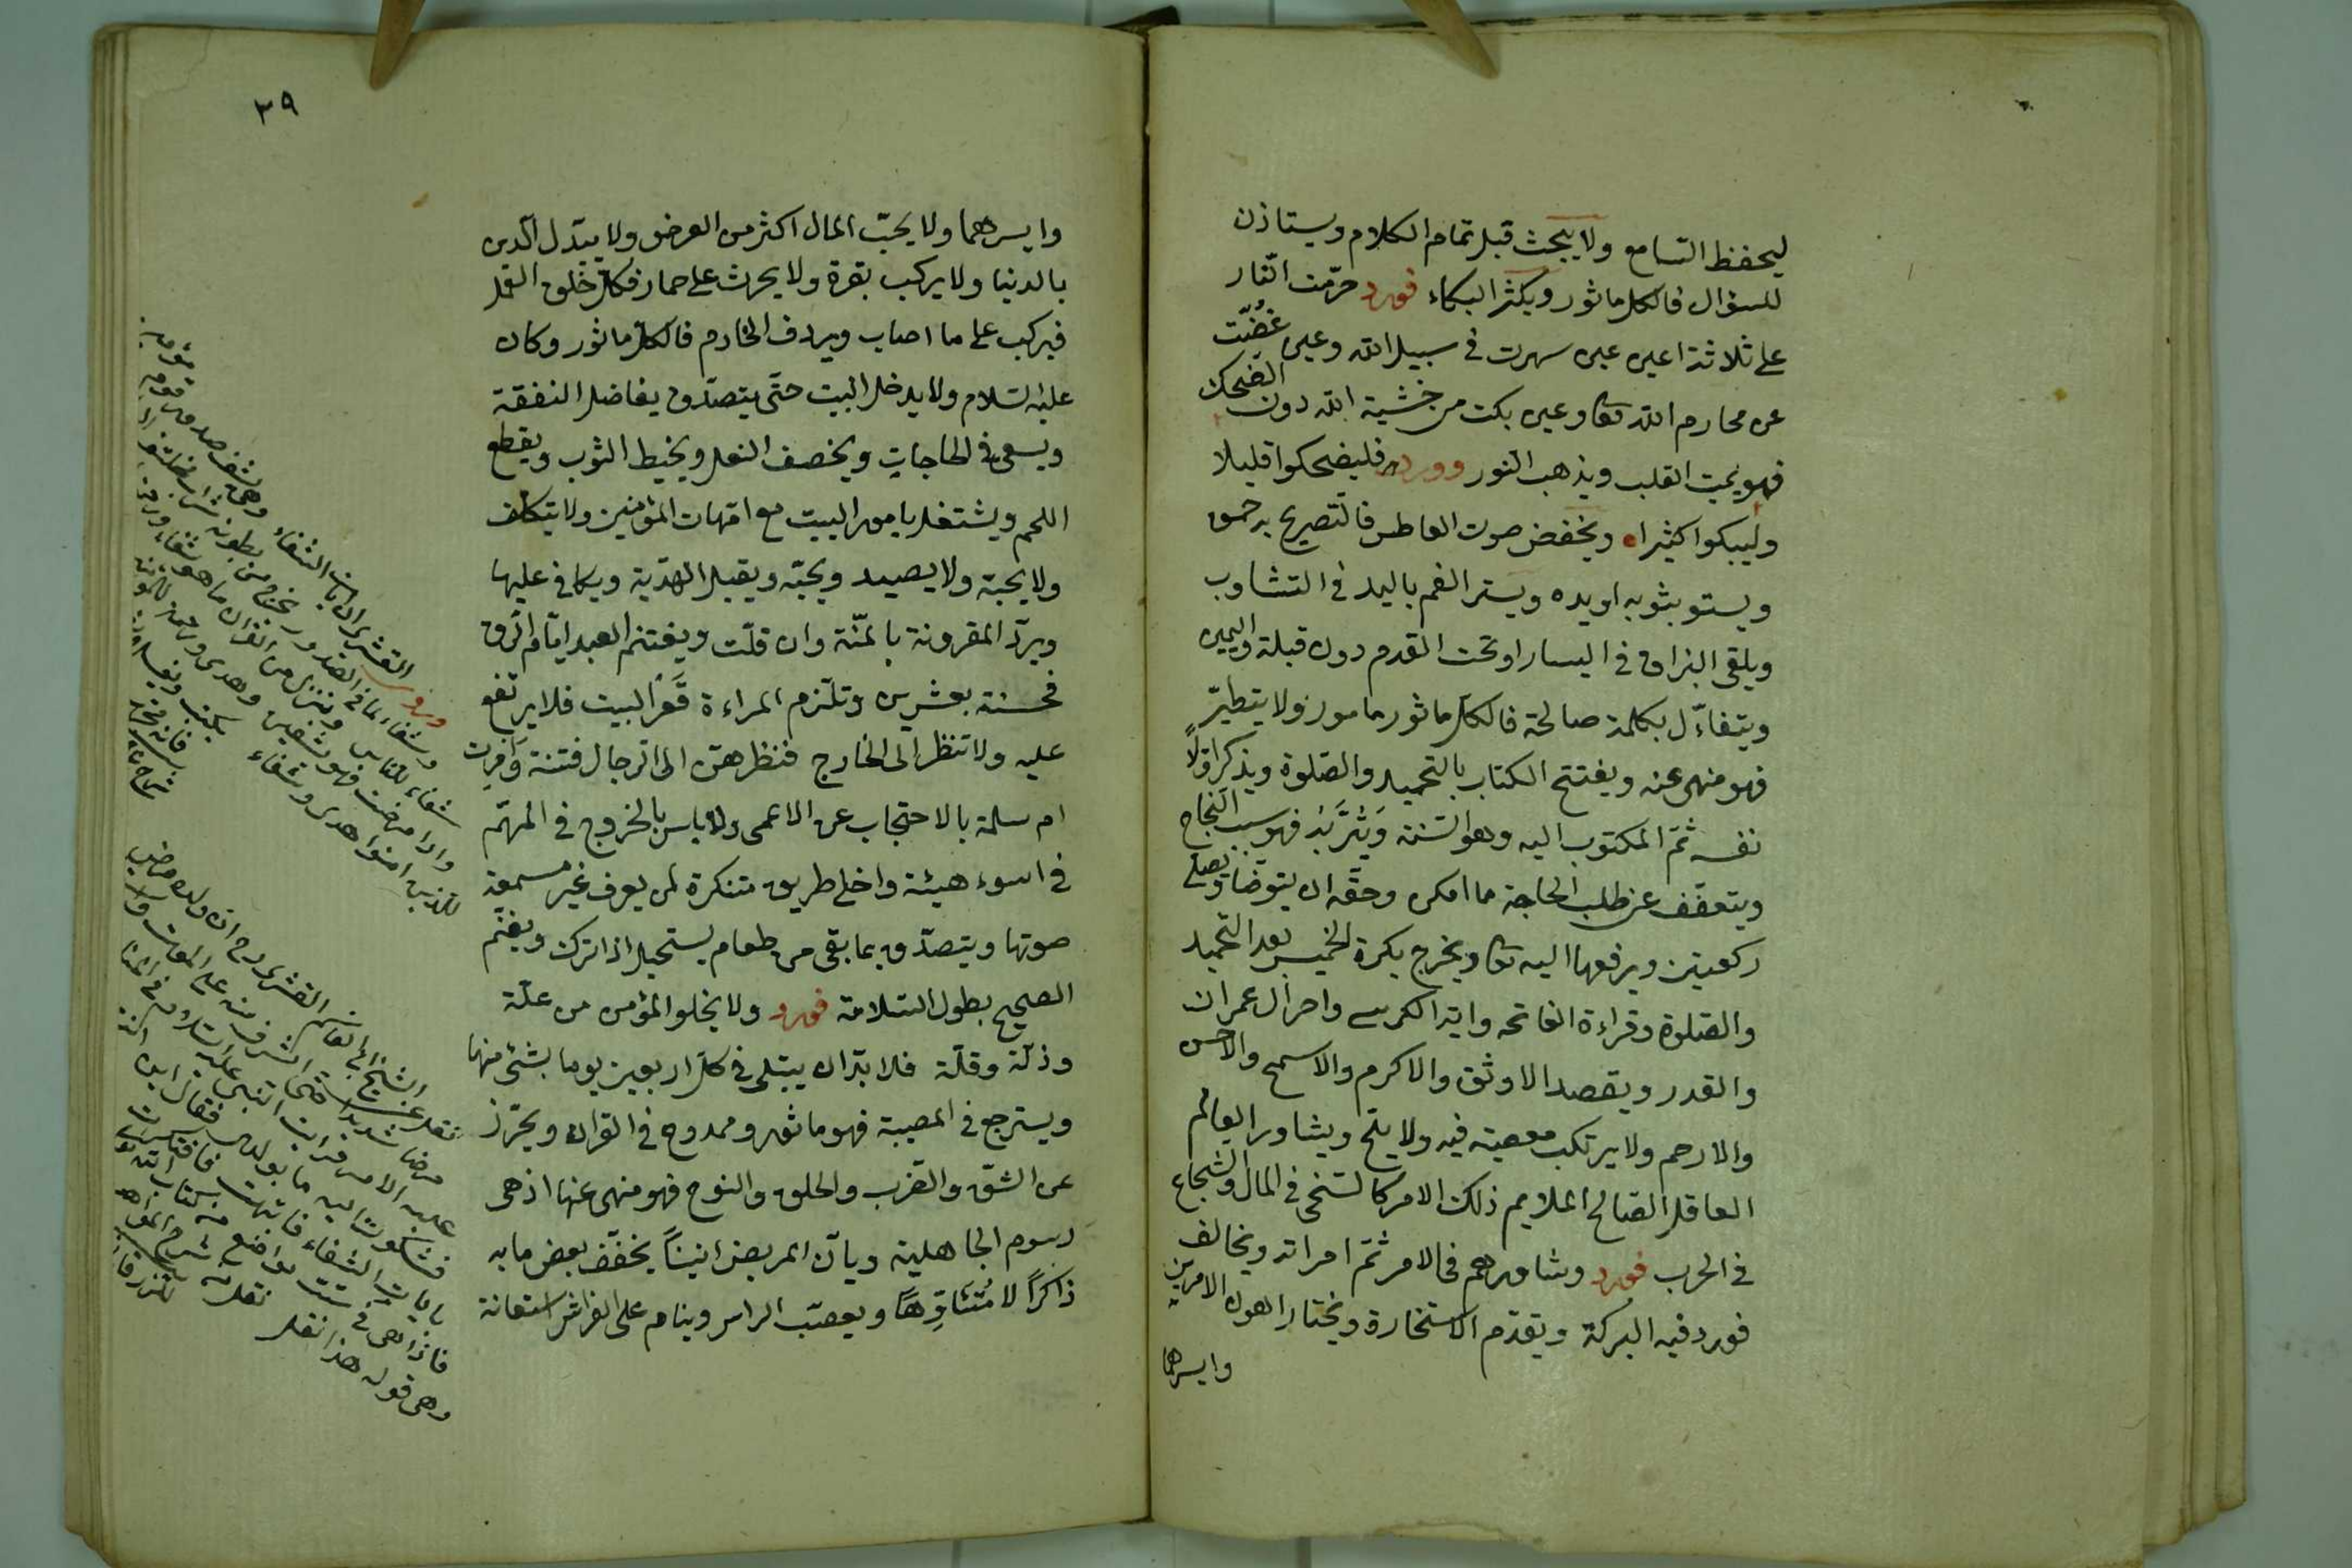 ليحفظ السامع ولا يبحث قبل تمام الكلام ويستاذن
للسؤال فالكل ماثور ويكثر البكاء فورد حرّمت النّار
على ثلاثة اعين عين سهرت في سبيل الله وعين غضّت
عن محارم الله تعا وعين بكت من خشية الله دون الضحك
فهو يميت القلب ويذهب النور وورد فليضحكوا قليلا
وليبكوا كثيرا ويخفض صوت العاطس فالتصريح به حمق
ويستر بثوبه او يده ويستر الفم باليد في التثاوب
ويلقى البزاق في اليسار او تحت القدم دون قبلة واليمين
ويتفاءّل بكلمة صالحة فالكل ماثور مامور ولا يتطيّر
فهو منهى عنه ويفتتح الكتاب بالتحميد والصّلوة ويذكر اوّلاً
نفسه ثمّ المكتوب اليه وهو السّنة ويُترّبُه فهو سبب النجاح
ويتعفّف عن طلب الحاجة ما امكن وحقّه ان يتوضّا ويصلى
ركعتين ويرفعها اليه تعا ويخرج بكرة الخميس بعد التحميد
والصّلوة وقراءة الفاتحه واية الكرسى واخر ال عمران
والقدر ويقصد الاوثق والاكرم والاسمح والاحسن
والارحم ولا يرتكب معصية فيه ولا يلح ويشاور العالم
العاقل الصّالح الملايم ذلك الامر كالسّخى في المال والشجاع
في الحرب فورد وشاورهم في الامر ثمّ امراته ويخالف
فورد فيه البركة ويقدّم الاستخارة ويختار اهون الامرين
وايسرهما
٣٩
وايسرهما ولا يحبّ المال اكثر من العرض ولا يبدّل الدين
بالدنيا ولا يركب بقرة ولا يحرث على حمار فكل خلق لعمل
فيركب على ما اصاب ويردف الخادم فالكل ماثور وكان
عليه السّلام ولا يدخل البيت حتّى يتصدّق بفاضل النفقة
ويسعى في الحاجات ويخصف النعل ويخيط الثوب ويقطع
اللحم ويشتغل بامور البيت مع امّهات المؤمنين ولا يتكلّف
ولا يحبّه ولا يصيد ويحبّه ويقبل الهديّة ويكافى عليها
ويردّ المقرونة بالمنّة وان قلّت ويغتنم العبد ايّام الرّق
فحسنة بعشرين وتلتزم المراءة قَعْر البيت فلا يرتفع
عليه ولا تنظر الى الخارج فنظرهنّ الى الرجال فتنة وَاُمِرت
ام سلمة بالاحتجاب عن الاعمى ولا باس بالخروج في المهمّ
في اسوء هيئة واخلى طريق متنكرة لمن يعرف غير مسمعة
صوتها ويتصدّق بما بقى من طعام يستحيل اذا ترك ويغتم
الصحيح بطول السّلامة فورد ولا يخلو المؤمن من علّة
وذلّة وقلّة فلا بدّ ان يبتلى في كلّ اربعين يوما بشئ منها
ويسترجع في المصيبة فهو ماثور وممدوح في القران ويحترز
عن الشقّ والضرب والحلق والنوح فهو منهى عنها اذ هى
رسوم الجاهلية ويانّ المريض انيناً يخفّف بعض ما به
ذاكراً لا مُتئاوِّهًا ويعصّب الراس وينام على الفراش استعانة
القشيرى ان ايات الشفاء وهى ويشف صدور قوم مؤمنين
وشفاء لما في الصدور يخرج من بطونها شراب مختلف الوانه
شفاء للناس وننزل من القران ما هو شفاء ورحمة
واذا مرضت فهو يشفين
للذين امنوا هدى وشفاء
نقل عن الشيخ ابى القاسم القشيرى رح ان ولده مرض
مرضا شديدا حتى اشرف منه على الموت
عليه الامر فرايت النبى عليه السّلام في المنام
فشكوت اليه ما بولدى فقال اين انت
بايات الشفاء فانتبهت فافتكرت
فاذا هى في ستّ مواضع من كتاب الله تعا
وهى قوله هذا نقل